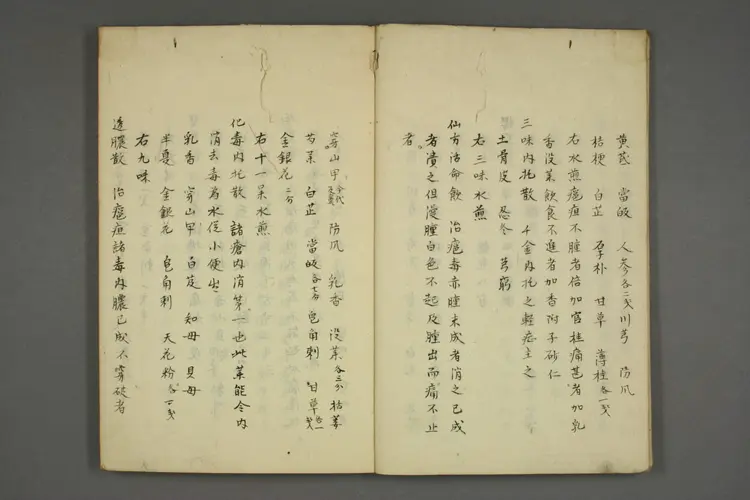 黄芪 當皈 人参各二戋 川芎 防风
桔梗 白芷 厚朴 甘草 薄桂各一戋
右水煎瘡疽不腫者倍加官桂痛甚者加乳
香没某飲食不進者加香附子砂仁
三味内托散 千金内托之軽症主之
土骨皮 忍冬 芎藭
右三味水煎
仙方活命飲 治瘡毒赤腫未成者消之已成
者潰之但漫腫白色不起及腫出而痛不止
者
穿山甲 防风 乳香 没某各三分 括蔞
芍某 白芷 當皈 皂角刺 甘草
金銀花二分
右十一某水煎
化毒内托散 諸瘡内消第一也此某能令内
消去毒為水従小便出
乳香 穿山甲 白芨 知母 貝母
半夏 金銀花 皂角刺 天花粉各一戋
右九味
透膿散 治瘡疽諸毒内膿已成不穿破者